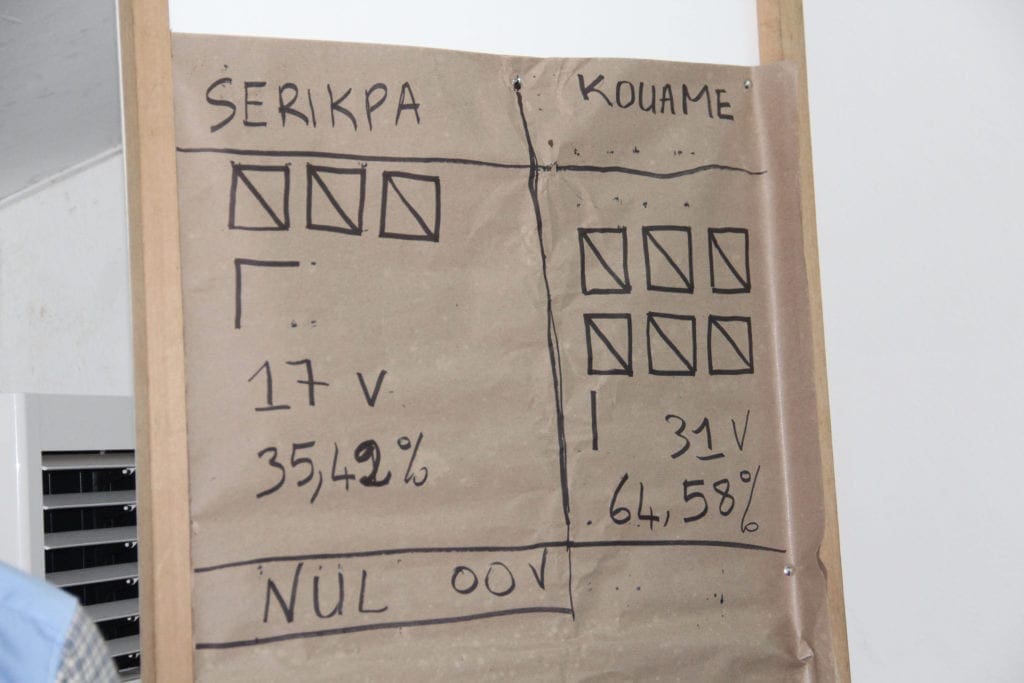 SERIKPA
KOUAME
17 V
35,42%
31 V
64,58%
NUL 00V